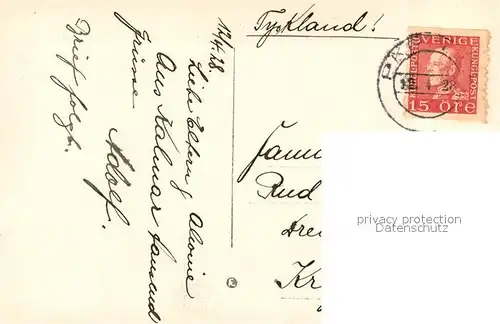 17/4.28.
Liebe Eltern &
Aus Kalmar tausend
Grüsse
Adolf.
Brief folgt.
Tyskland!
SVERIGE
KUNGL. POST
15 ÖRE
Rud
Dre
Kr
privacy protection
Datenschutz